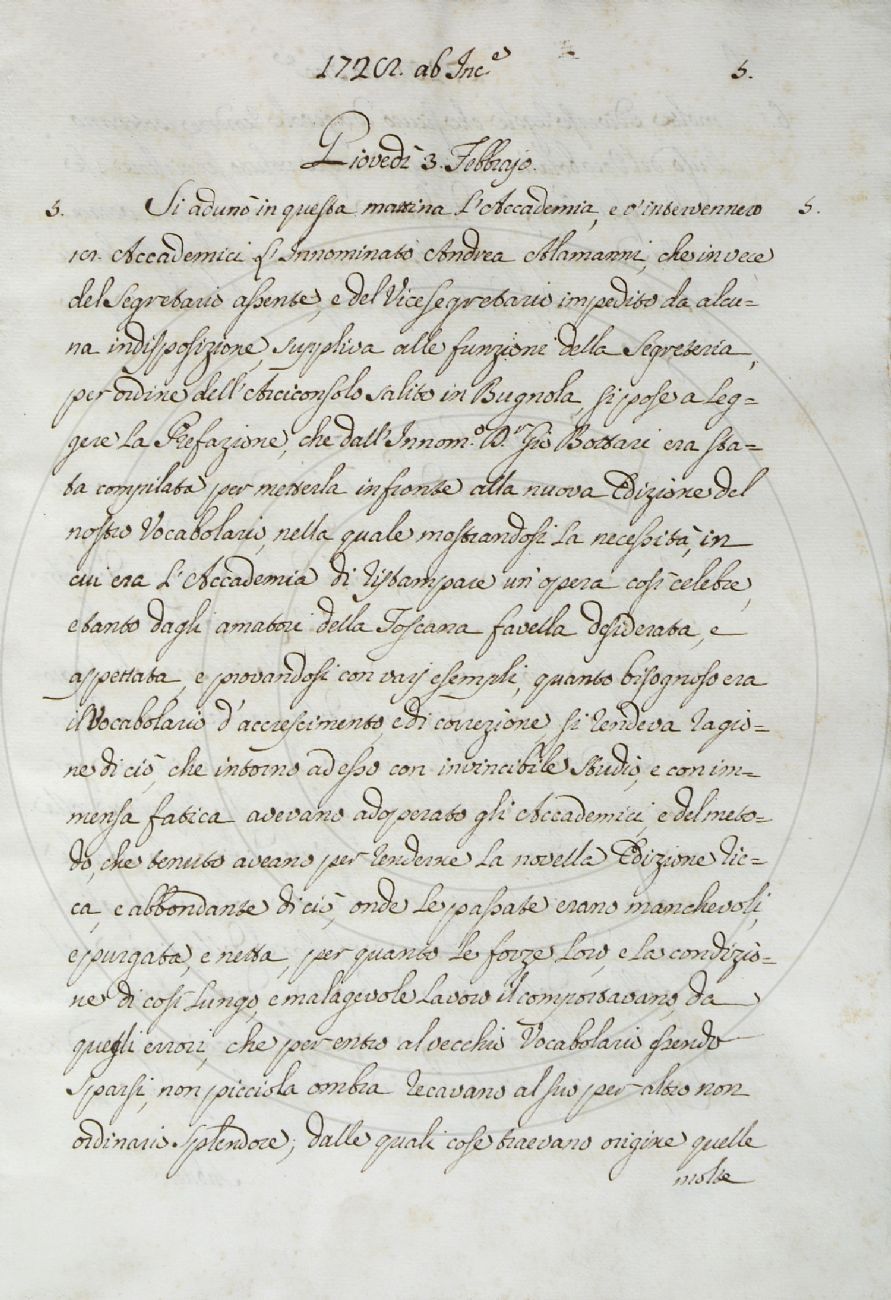 1728. ab Inc.e 5.
Giovedì 3. Febbrajo.
5. Si adunò in questa mattina l'Accademia, e v'intervennero 5.
18. Accademici. L'Innominato Andrea Alamanni, che in vece
del Segretario assente, e del Vicesegretario impedito da alcu=
na indisposizione, suppliva alle funzioni della Segreteria,
per ordine dell'Arciconsolo salito in Bugnola, si pose a leg=
gere la Prefazione, che dall'Innom.o D.r Gio Bottari era sta=
ta compilata per metterla in fronte alla nuova Edizione del
nostro Vocabolario, nella quale mostrandosi la necessità, in
cui era l'Accademia di ristampare un'opera così celebre,
e tanto dagli amatori della Toscana favella desiderata, e
aspettata, e provandosi con varj esempli, quanto bisognoso era
il Vocabolario d'accrescimento, e di correzione, si rendeva ragio=
ne di ciò, che intorno ad esso con invincibile studio, e con im=
mensa fatica avevano adoperato gli Accademici, e del meto=
do, che tenuto aveano per renderne la novella Edizione ric=
ca, e abbondante di ciò, onde le passate erano manchevoli,
e purgata, e netta, per quanto le forze loro, e la condizio=
ne di così lungo, e malagevole lavoro il comportavano, da
quegli errori, che per entro al vecchio Vocabolario essendo
sparsi, non picciola ombra recavano al suo per altro non
ordinario splendore; dalle quali cose traevano origine quelle
molte